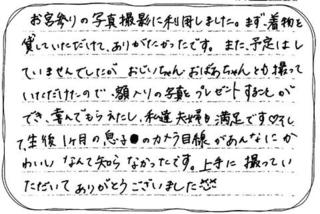 お宮参りの写真撮影に利用しました。まず、着物を
貸していただけて、ありがたかったです。また、予定はし
ていませんでしたが おじいちゃん おばあちゃんとも撮って
いただけたので、額入りの写真をプレゼントすることが
でき、喜んでもらえたし、私達夫婦も満足です♡そし
て、生後1ヶ月の息子●のカメラ目線があんなにか
わいいなんて知らなかったです。上手に撮ってい
ただいてありがとうございました